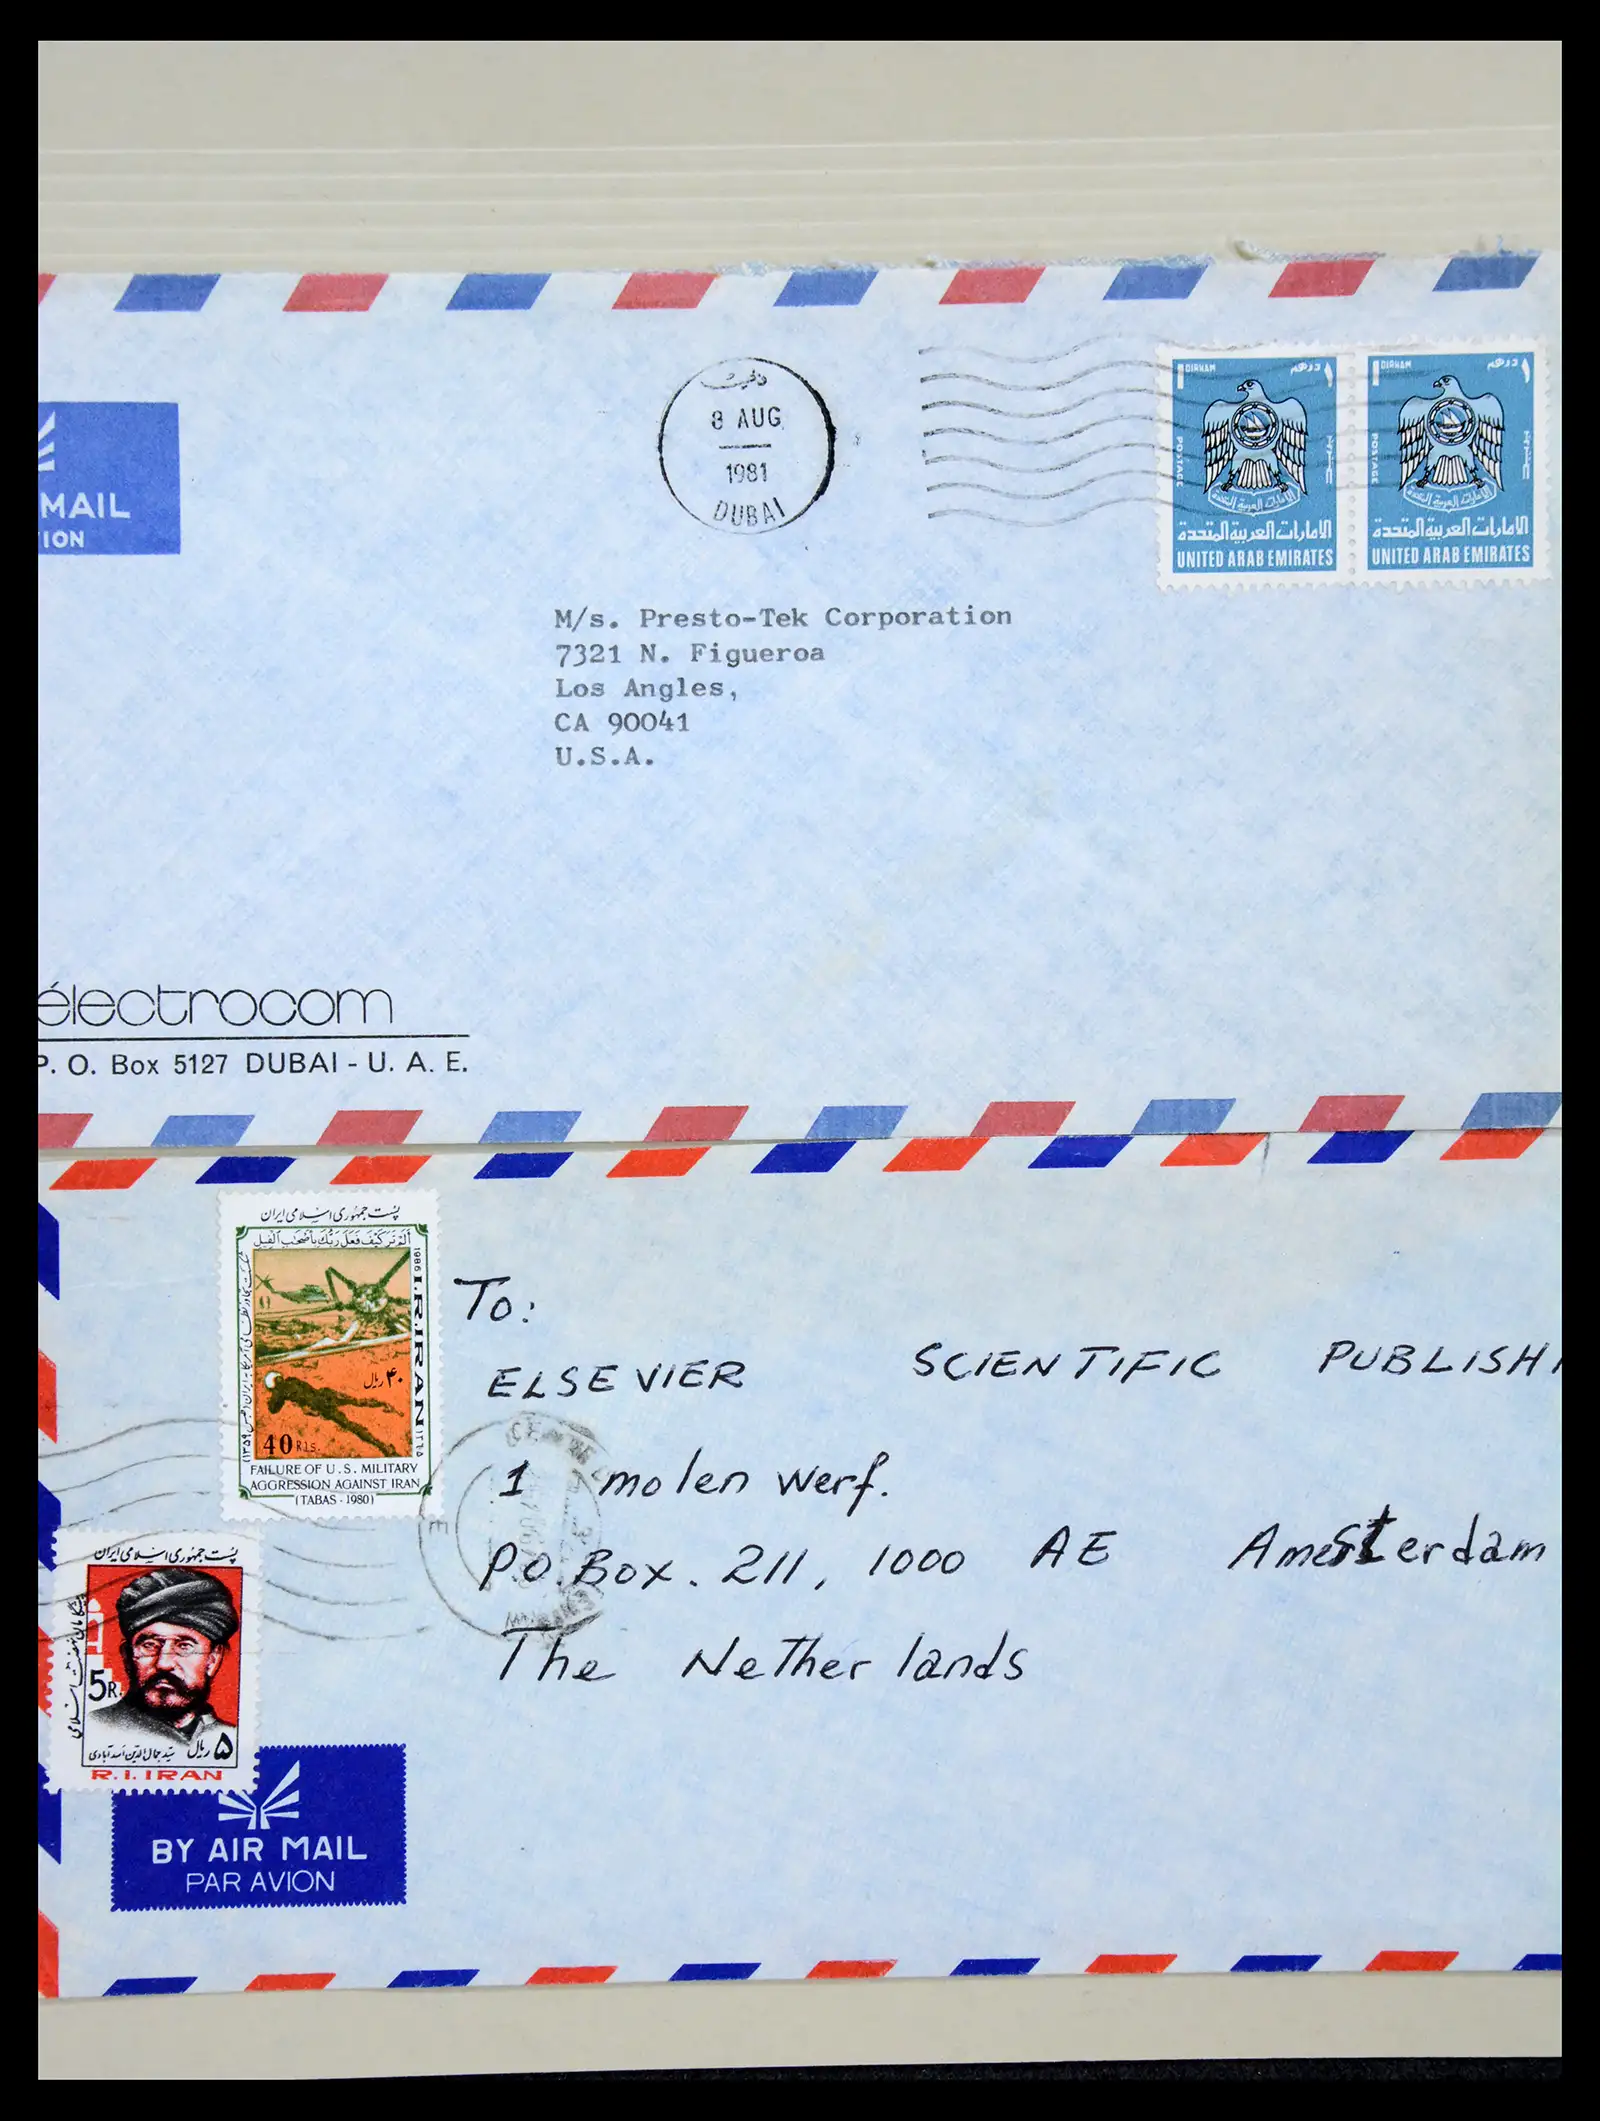 MAIL
ION
دبي
8 AUG
1981
DUBAI
1 DIRHAM
١ درهم
POSTAGE
الامارات العربية المتحدة
الامارات العربية المتحدة
UNITED ARAB EMIRATES
1 DIRHAM
١ درهم
POSTAGE
الامارات العربية المتحدة
الامارات العربية المتحدة
UNITED ARAB EMIRATES
M/s. Presto-Tek Corporation
7321 N. Figueroa
Los Angles,
CA 90041
U.S.A.
électrocom
P. O. Box 5127 DUBAI - U. A. E.
پست جمهوری اسلامی ایران
ألم تر كيف فعل ربك بأصحاب الفيل
1986 I.R.IRAN ١٣٦٥
۴۰ ریال
40 Rls.
FAILURE OF U.S. MILITARY
AGGRESSION AGAINST IRAN
(TABAS - 1980)
To:
ELSEVIER SCIENTIFIC PUBLISHI
1 molen werf.
P.O. Box. 211, 1000 AE Amersterdam
The Netherlands
پست جمهوری اسلامی ایران
5R.
۵ ریال
سید جمال الدین اسدآبادی
R.I.IRAN
BY AIR MAIL
PAR AVION